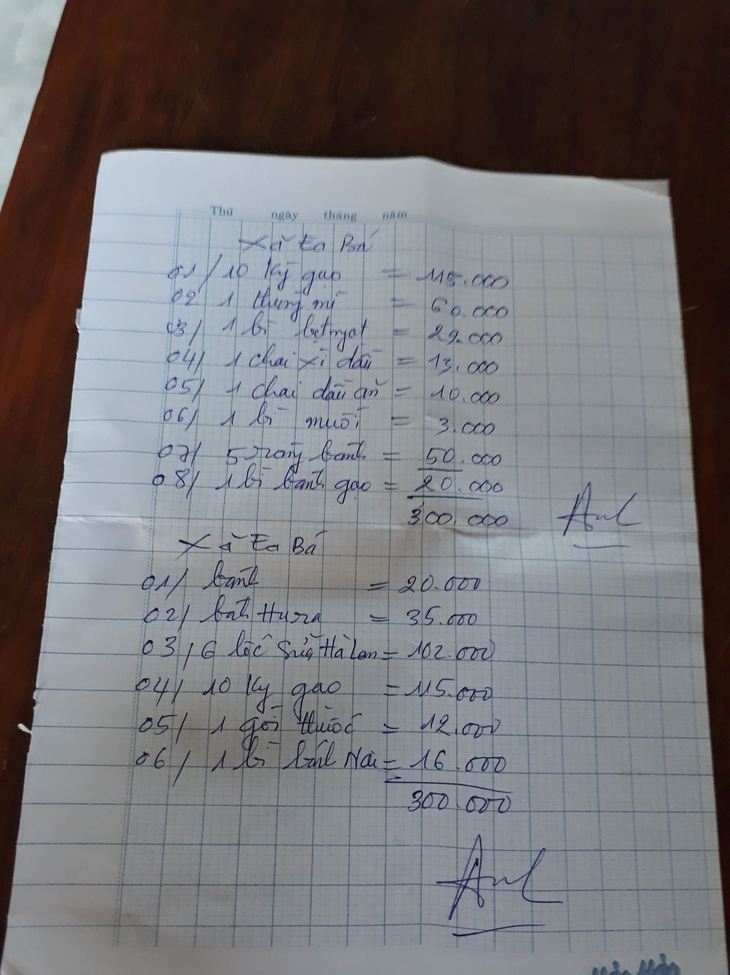 Thứ ngày tháng năm
Xã Ea Bá
01/ 10 Ký gạo = 115.000
02 1 thùng mì = 60.000
03/ 1 bì bột ngọt = 29.000
04/ 1 chai xì dầu = 13.000
05/ 1 chai dầu ăn = 10.000
06/ 1 bì muối = 3.000
07/ 5 bánh = 50.000
08/ 1 bì bánh gạo = 20.000
300.000
Xã Ea Bá
01/ bánh = 20.000
02/ bánh Hura = 35.000
03/ 6 lốc Sữa Hà Lan = 102.000
04/ 10 Ký gạo = 115.000
05/ 1 gói thuốc = 12.000
06/ 1 bì bánh = 16.000
300.000